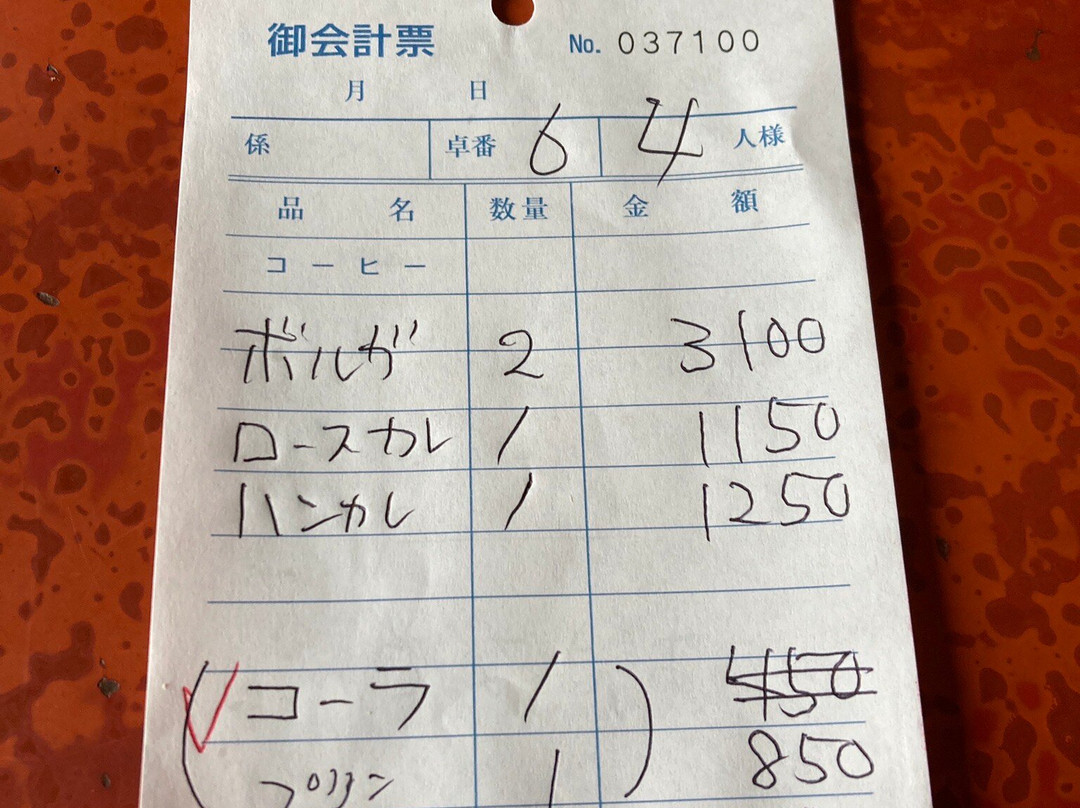 御会計票 No. 037100
月 日
係 卓番 6 4 人様
品名 数量 金額
コーヒー
ボルガ 2 3100
ロースカレ 1 1150
ハンカレ 1 1250
(コーラ 1) 450
プリン 1 850